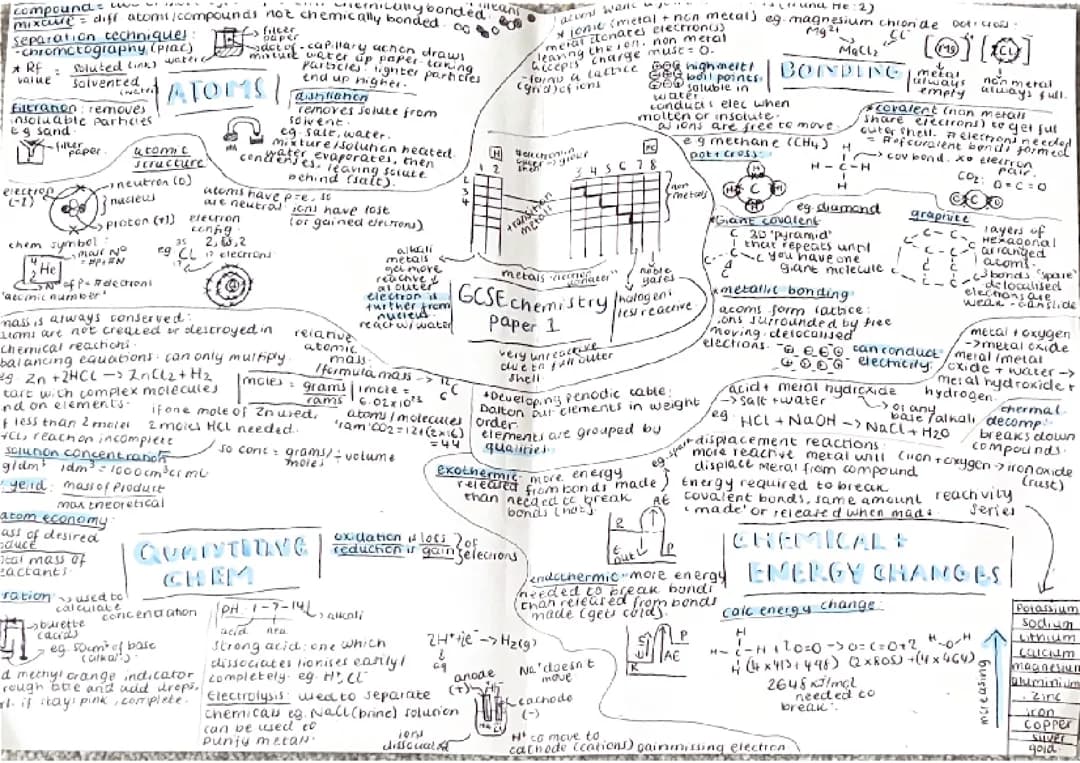 compound =
mixture = diff atoms/compounds not chemically bonded.
separation techniques:
- chromotography (PTAC)
filter paper
water
- capillary action draws
water up paper taking
particles. lighter particles
end up higher.
* Rf value =
solvent
ATOMS
filtration: removes
insoluable particles
eg sand.
filter paper.
distillation
removes solute from
solvent.
eg. salt, water.
mixture/solution heated.
water evaporates, then
condenses, leaving solute
behind (salt).
atomic structure
electron (-1)
neutron (0)
nucleus
proton (+1)
atoms have p=e, so
are neutral. ions have lost
(or gained electrons)
electron config.
2, 8, 2
eg Cl 17 electrons
35
17
chem symbol:
4
2 He
mass No
No of p = # electrons
'atomic number'
* ionic (metal + non metal) eg. magnesium chloride dot cross:
metal (donates electrons)
leaving the ion. non metal
accepts charge must = 0.
- forms a lattice
(grid) of ions
high melt/
boil points,
soluble in
water
conducts elec when
molten or insolute.
as ions are free to move.
Mg2+
Cl-
MgCl2
[Mg]
[Cl]
metal always empty
non metal always full.
BONDING
* covalent (non metals
share electrons) to get full
outer shell. # electrons needed
= # of covalent bonds formed
eg methane (CH4)
dot + cross:
H
H - C - H
H
cov bond. xo electron pair.
CO2: O=C=O
* Giant covalent
eg. diamond
3D 'pyramid'
that repeats until
you have one
giant molecule
graphite
layers of
hexagonal
arranged
atoms.
3 bonds, 'spare'
delocalised
electrons are
weak - can slide
* metallic bonding:
atoms form lattice:
ions surrounded by free
moving. delocalised
electrons.
can conduct
electricity.
1 2
3 4 5 6 7 8
1
2
3
4
transition metals
non metals
alkali
metals
get more
reactive ↓
as outer
electron is
further from
nucleus.
react w/ water
metals
noble gases
halogens
less reactive
GCSE chemistry
paper 1
very unreactive
due to full outer
shell
mass is always conserved:
atoms are not created or destroyed in
chemical reactions.
balancing equations: can only multiply.
eg Zn + 2HCl → ZnCl2 + H2
start with complex molecules
end on elements.
if one mole of Zn used,
2 moles HCl needed.
if less than 2 moles
HCl, reaction incomplete
relative
atomic
mass.
/formula mass → 12C
moles = grams
rams
1 mole =
6.02 x 10²³
atoms/molecules
'ram' CO2 = 12 + (2x16)
= 44
solution concentration
g/dm³ 1dm³ = 1000cm³ or ml
so conc = grams/moles ÷ volume
% yeild: mass of Product
max theoretical
atom economy:
mass of desired
product
total mass of
reactants.
QUANTITIVE
CHEM
oxidation is loss
reduction is gain
of electrons
* Developing Periodic table:
Dalton put elements in weight
order.
elements are grouped by
qualities.
titration → used to
calculate
concentration
burette
(acids)
eg. 50cm³ of base
(alkali)
add methyl orange indicator
PH: 1-7-14
acid neu alkali
strong acid: one which
dissociates/ionises easily/
completely. eg. H+, Cl-
Electrolysis: used to separate
chemicals eg. NaCl (brine) solution
can be used to
purify metals.
2H+ + 2e- → H2(g)
aq
anode
(+)
cathode
(-)
ions
dissociated
Na+ doesn't
move
H+ to move to
cathode (cations) gain missing electron
exothermic - more energy
released from bonds made
than needed to break
bonds (hot).
AE
R
P
E out
endothermic - more energy
needed to break bonds
than released from bonds
made (gets cold).
R
P
AE
metal + oxygen
→ metal oxide
metal/metal
oxide + water →
metal hydroxide +
hydrogen.
acid + metal hydroxide
→ salt + water
or any
base/alkali
eg: HCl + NaOH → NaCl + H2O
thermal
decomp:
breaks down
compounds.
displacement reactions:
more reactive metal will
displace metal from compound
(iron + oxygen → iron oxide
(rust)
Energy required to break
covalent bonds, same amount
'made' or released when made.
reactivity
series
CHEMICAL +
ENERGY CHANGES
calc energy change:
H
H - C - H + 2O=O → O=C=O + 2 H-O-H
H
(4 x 413 + 498) (2 x 805) + (4 x 464)
2648 kJ/mol
needed to
break.
increasing
Potassium
sodium
lithium
calcium
magnesium
aluminium
zinc
iron
copper
silver
gold